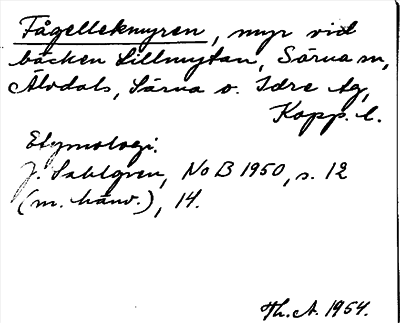 Fågellekmyren, myr vid
bäcken Lillmytan, Särna sn,
Älvdals, Särna o. Idre tg,
Kopp. l.
Etymologi.
J. Sahlgren, NoB 1950, s. 12
(m. hänv.), 14.
Th. A. 1954.